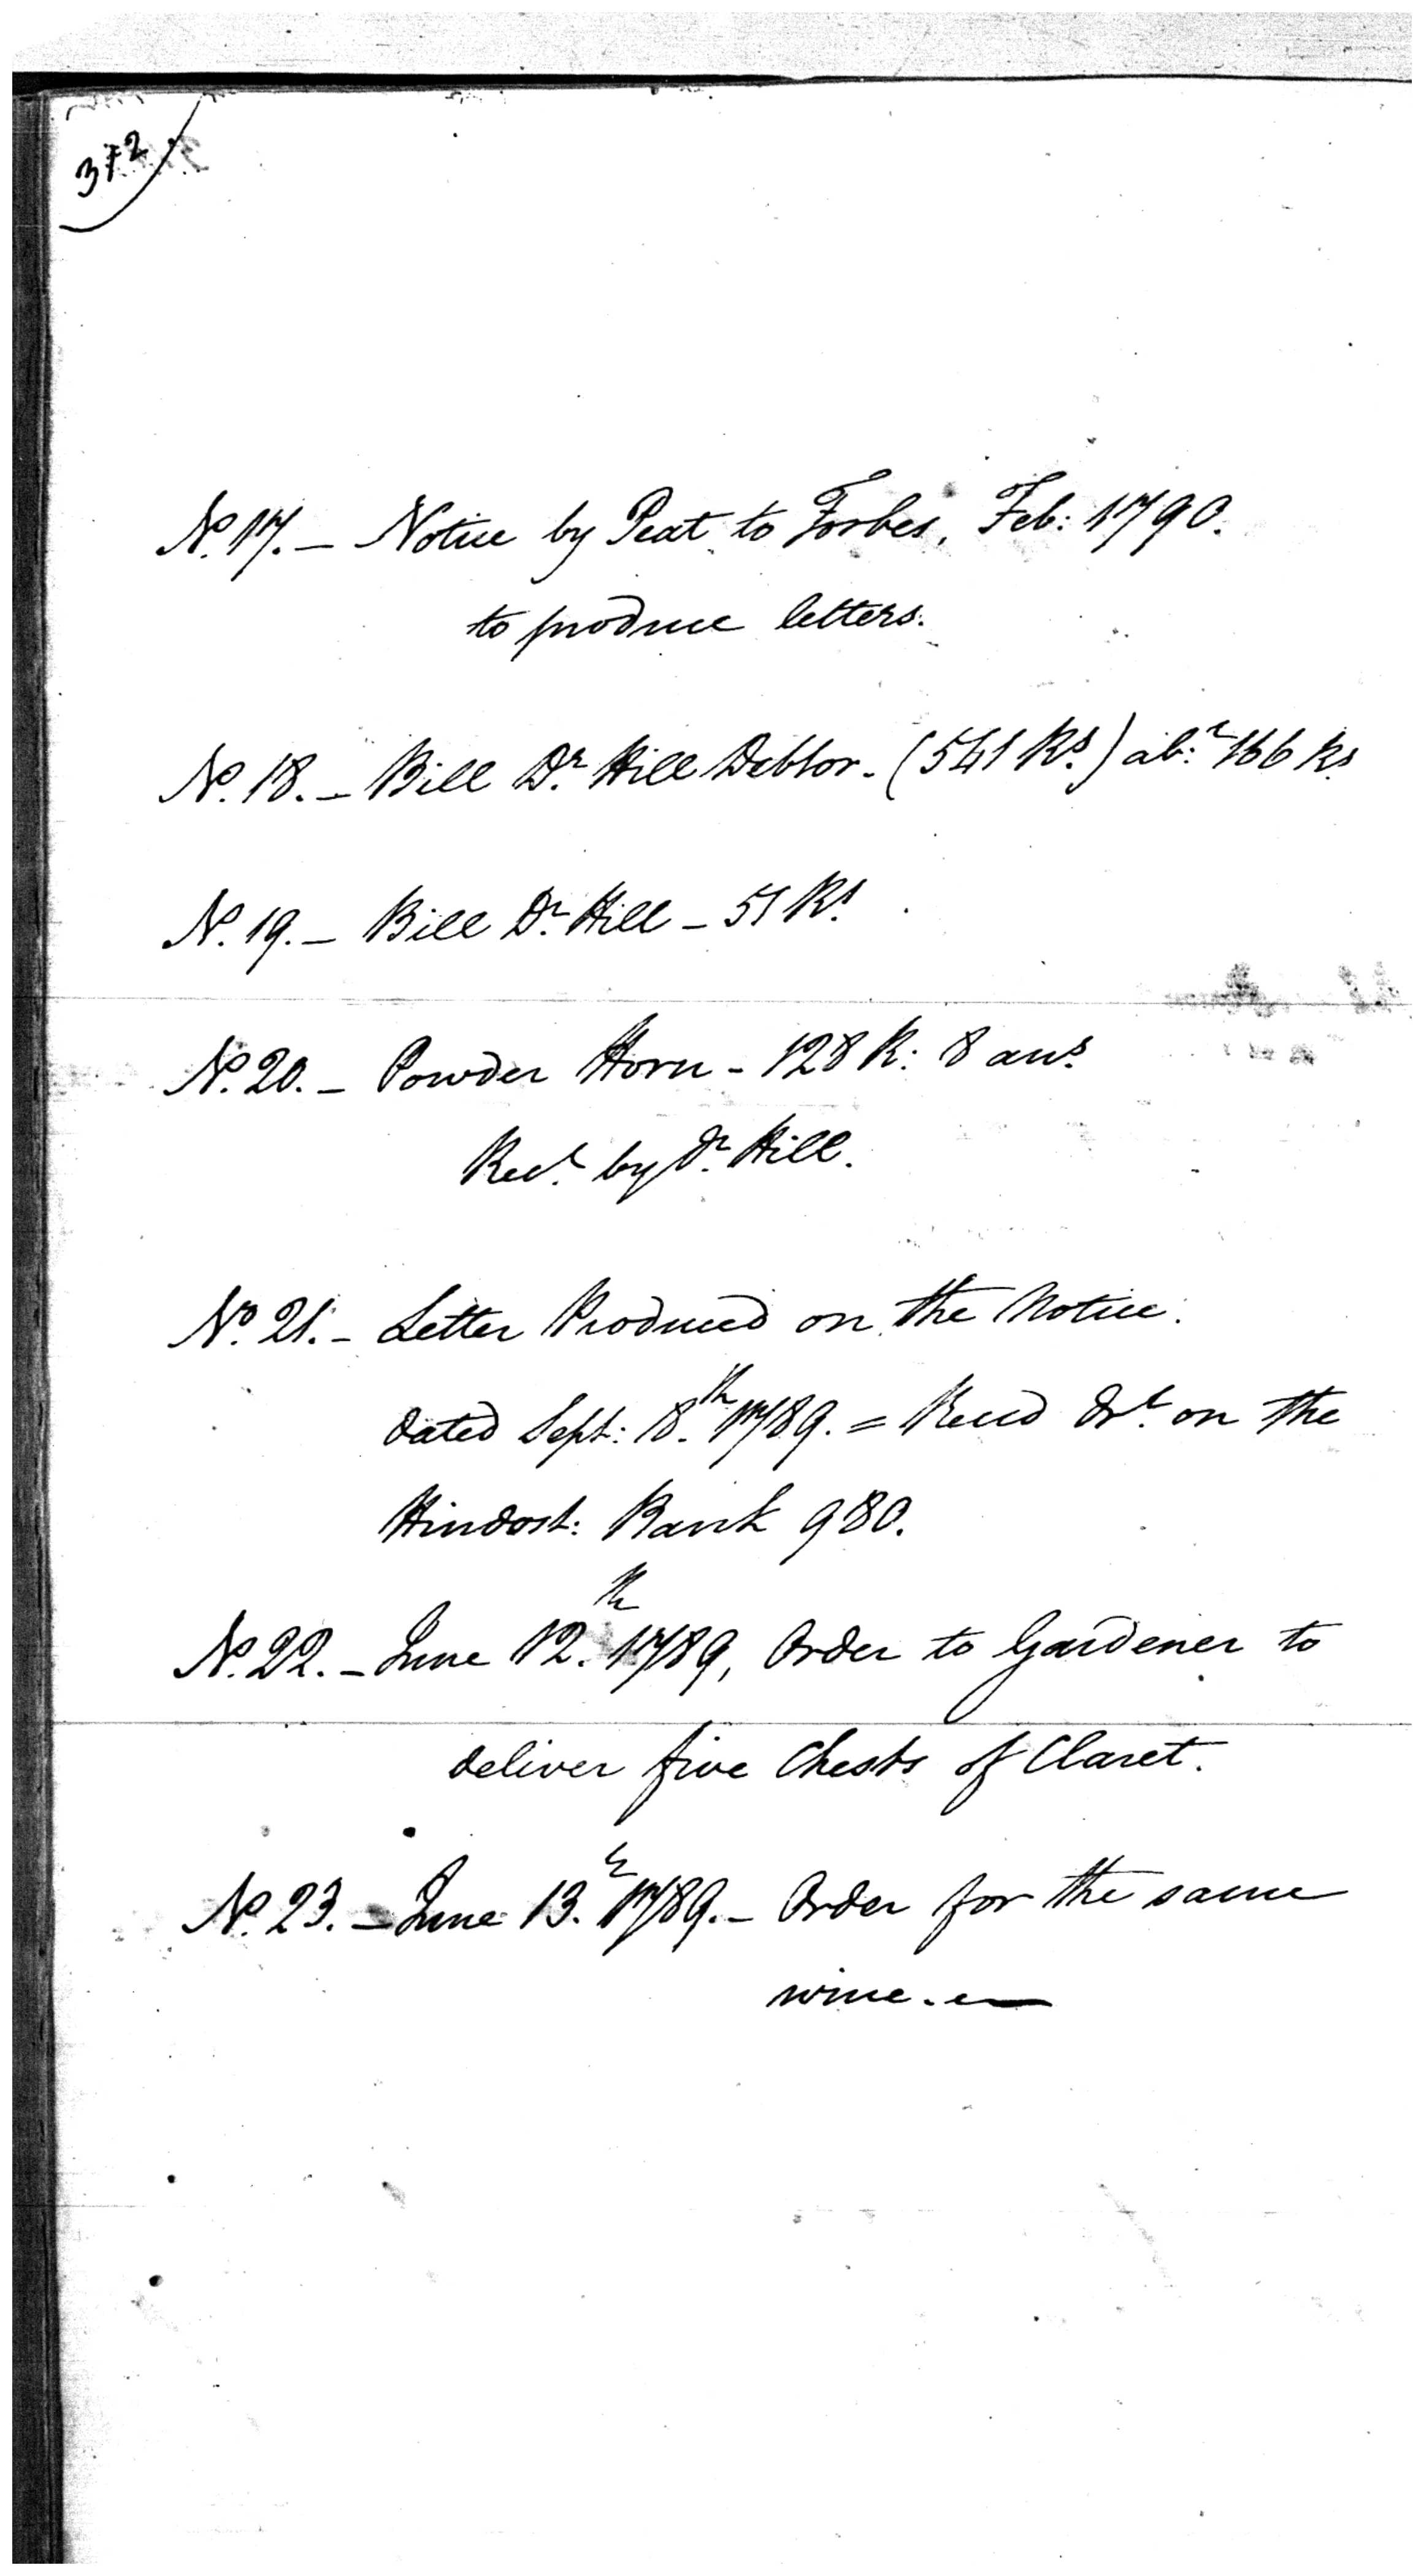 372
No. 17. – Notice by Peat to Forbes, Feb: 1790.
to produce letters.
No. 18. – Bill Dr. Hill Debtor – (541 Rs.) ab: 166 Rs
No. 19. – Bill Dr. Hill – 51 Rs.
No. 20. – Powder Horn – 128 R: 8 ans.
Recd. by Dr. Hill.
No. 21. – Letter Produced on the Notice.
dated Sept: 18th. 1789. = Recd Drt. on the
Hindost: Bank 980.
No. 22. – June 12th. 1789, Order to Gardener to
deliver five Chests of Claret.
No. 23. – June 13th. 1789. – Order for the same
wine. —